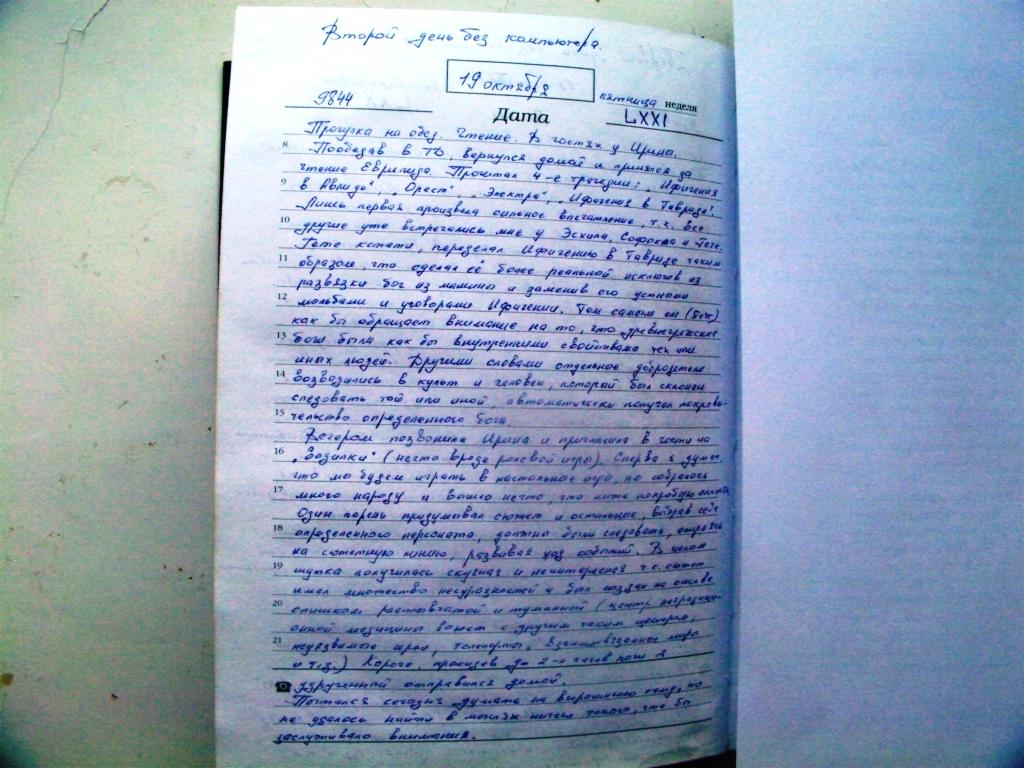 Второй день без компьютера.
19 октября
9844 пятница неделя
Дата LXXI
Прогулка на обед. Чтение. В гостях у Ирины.
8 Пообедав в ТД, вернулся домой и принялся за
чтение Еврипида. Прочитал 4-е трагедии: „Ифигения
9 в Авлиде", „Орест", „Электра", „Ифигения в Тавриде".
Лишь первая произвела сильное впечатление, т.к. все
10 другие уже встречались мне у Эсхила, Софокла и Гете.
Гете кстати, переделал Ифигению в Тавриде таким
11 образом, что сделал её более реальной исключив из
развязки бог из машины и заменив его устными
12 мольбами и уговорами Ифигении. Тем самым он (Гете)
как бы обращает внимание на то, что древнегреческие
13 боги были как бы внутренними свойствами тех или
иных людей. Другими словами отдельные добродетели
14 возводились в культ и человек, который был склонен
следовать той или иной, автоматически получал покрови-
15 тельство определенного бога.
Вечером позвонила Ирина и пригласила в гости на
16 (нечто вроде ролевой игры). Сперва я думал,
что мы будем играть в настольную игру, но собралось
17 много народу и вышло нечто, что ниже попробую описать
Один парень придумывал сюжет и остальные, выбрав себе
18 определенного персонажа, должны были следовать, опираясь
на сюжетную линию, развивая ход событий. В целом
19 шутка получилась скучная и неинтересная т.к. сюжет
имел множество несуразностей и был создан на основе
20 слишком расплывчатой и туманной (центр
медицины воюет с другим таким центром,
21 неуязвимые враги, телепорты, взаимосвязанные миры
и т.д.) Короче, просидев до 2-х часов ночи я
удрученный отправился домой.
Пытался сегодня думать на вчерашнюю тему, но
не удалось найти в мыслях ничего такого, что бы
заслуживало внимания.